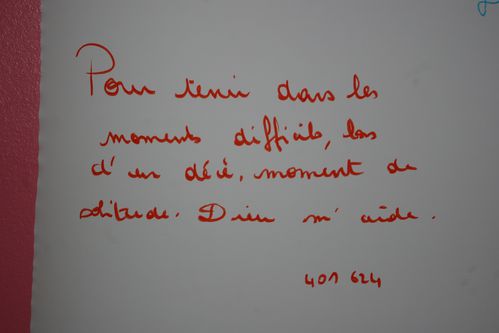 Pour tenir dans les
moments difficils, lors
d'un décé, moment de
solitude. Dieu m'aide.
401 624